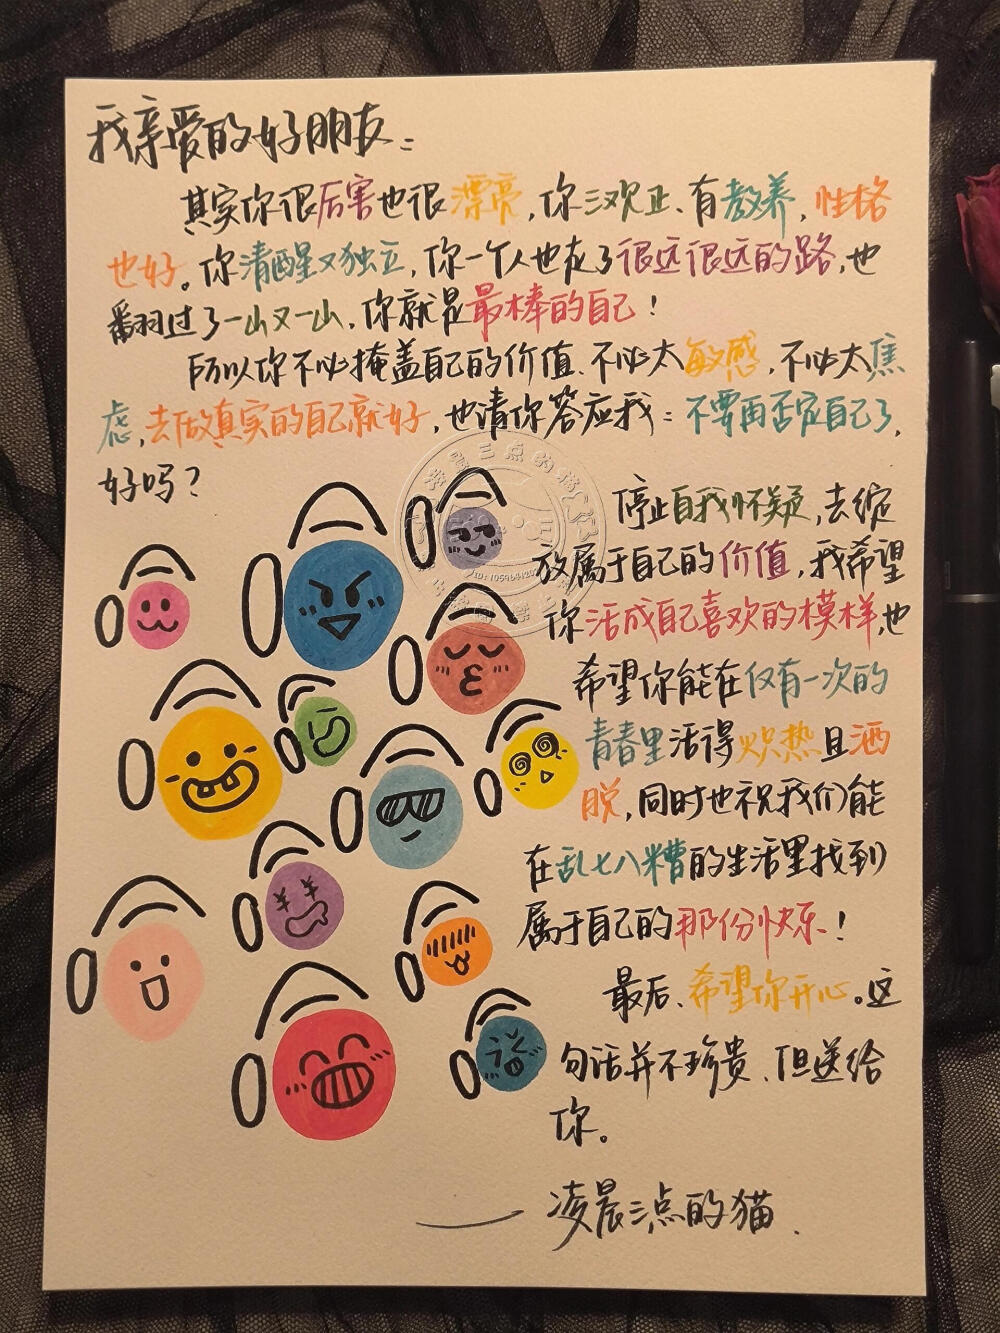 我亲爱的好朋友：
其实你很厉害也很漂亮，你三观正、有教养，性格
也好。你清醒又独立，你一个人走了很远很远的路，也
翻过了一山又一山，你就是最棒的自己！
所以你不必掩盖自己的价值、不必太敏感，不必太焦
虑，去做真实的自己就好，也请你答应我：不要再否定自己了，
好吗？
凌晨三点的猫
停止自我怀疑，去绽
放属于自己的价值，我希望
你活成自己喜欢的模样，也
希望你能在仅有一次的
青春里活得炽热且洒
脱，同时也祝我们能
在乱七八糟的生活里找到
属于自己的那份快乐！
最后、希望你开心。这
句话并不珍贵、但送给
你。
——凌晨三点的猫、